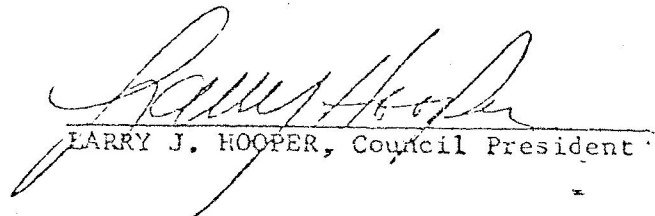 Larry Hooper
LARRY J. HOOPER, Council President